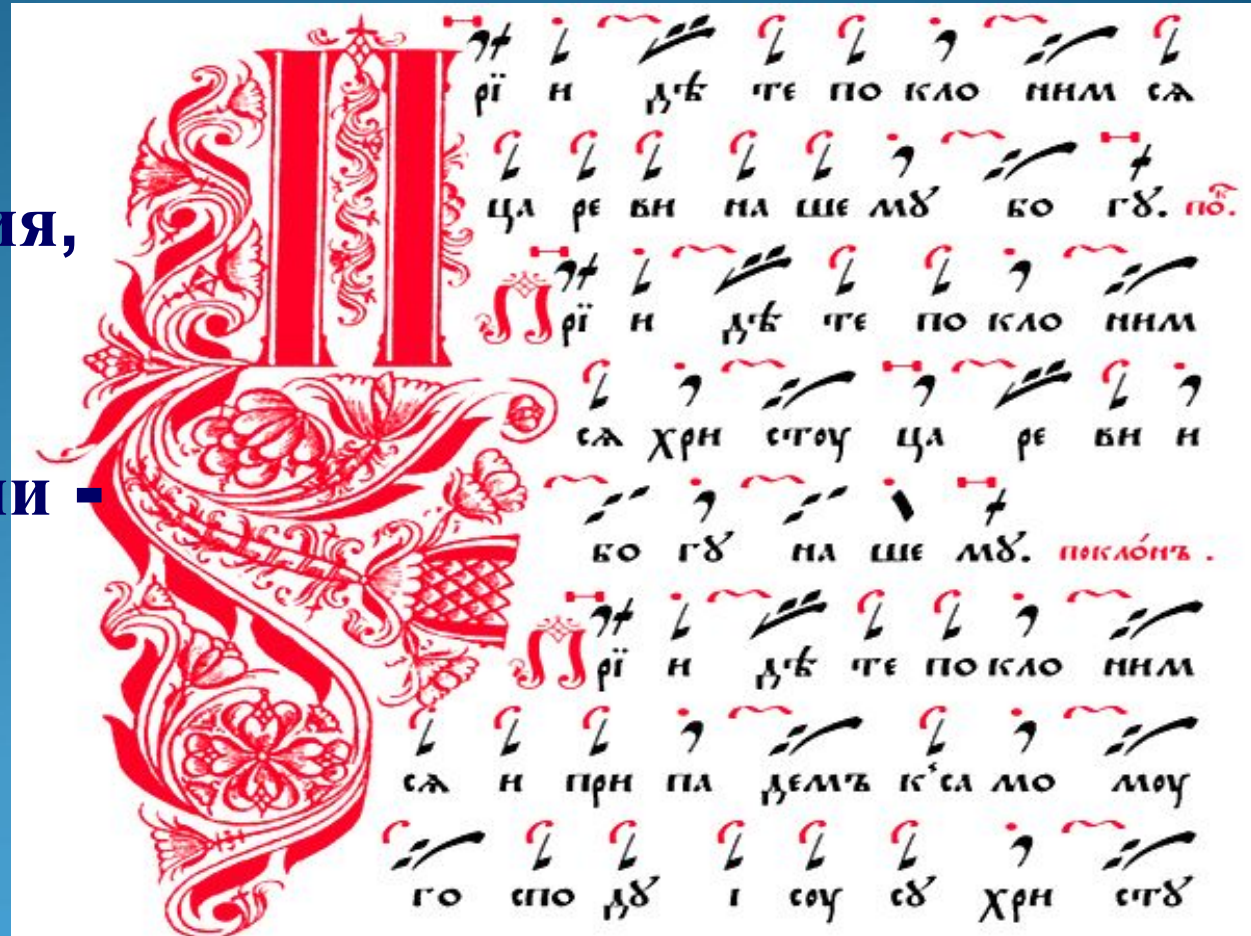 П рї и дѣ те по кло ним сѧ
ца ре ви на ше мꙋ бо гꙋ. по̑к.
П рї и дѣ те по кло ним
сѧ хри стоу ца ре ви и
бо гꙋ на ше мꙋ. покло́нъ .
П рї и дѣ те по кло ним
сѧ и при па демъ к'са мо моу
го спо дꙋ і соу сꙋ хри стꙋ
ия,
и -